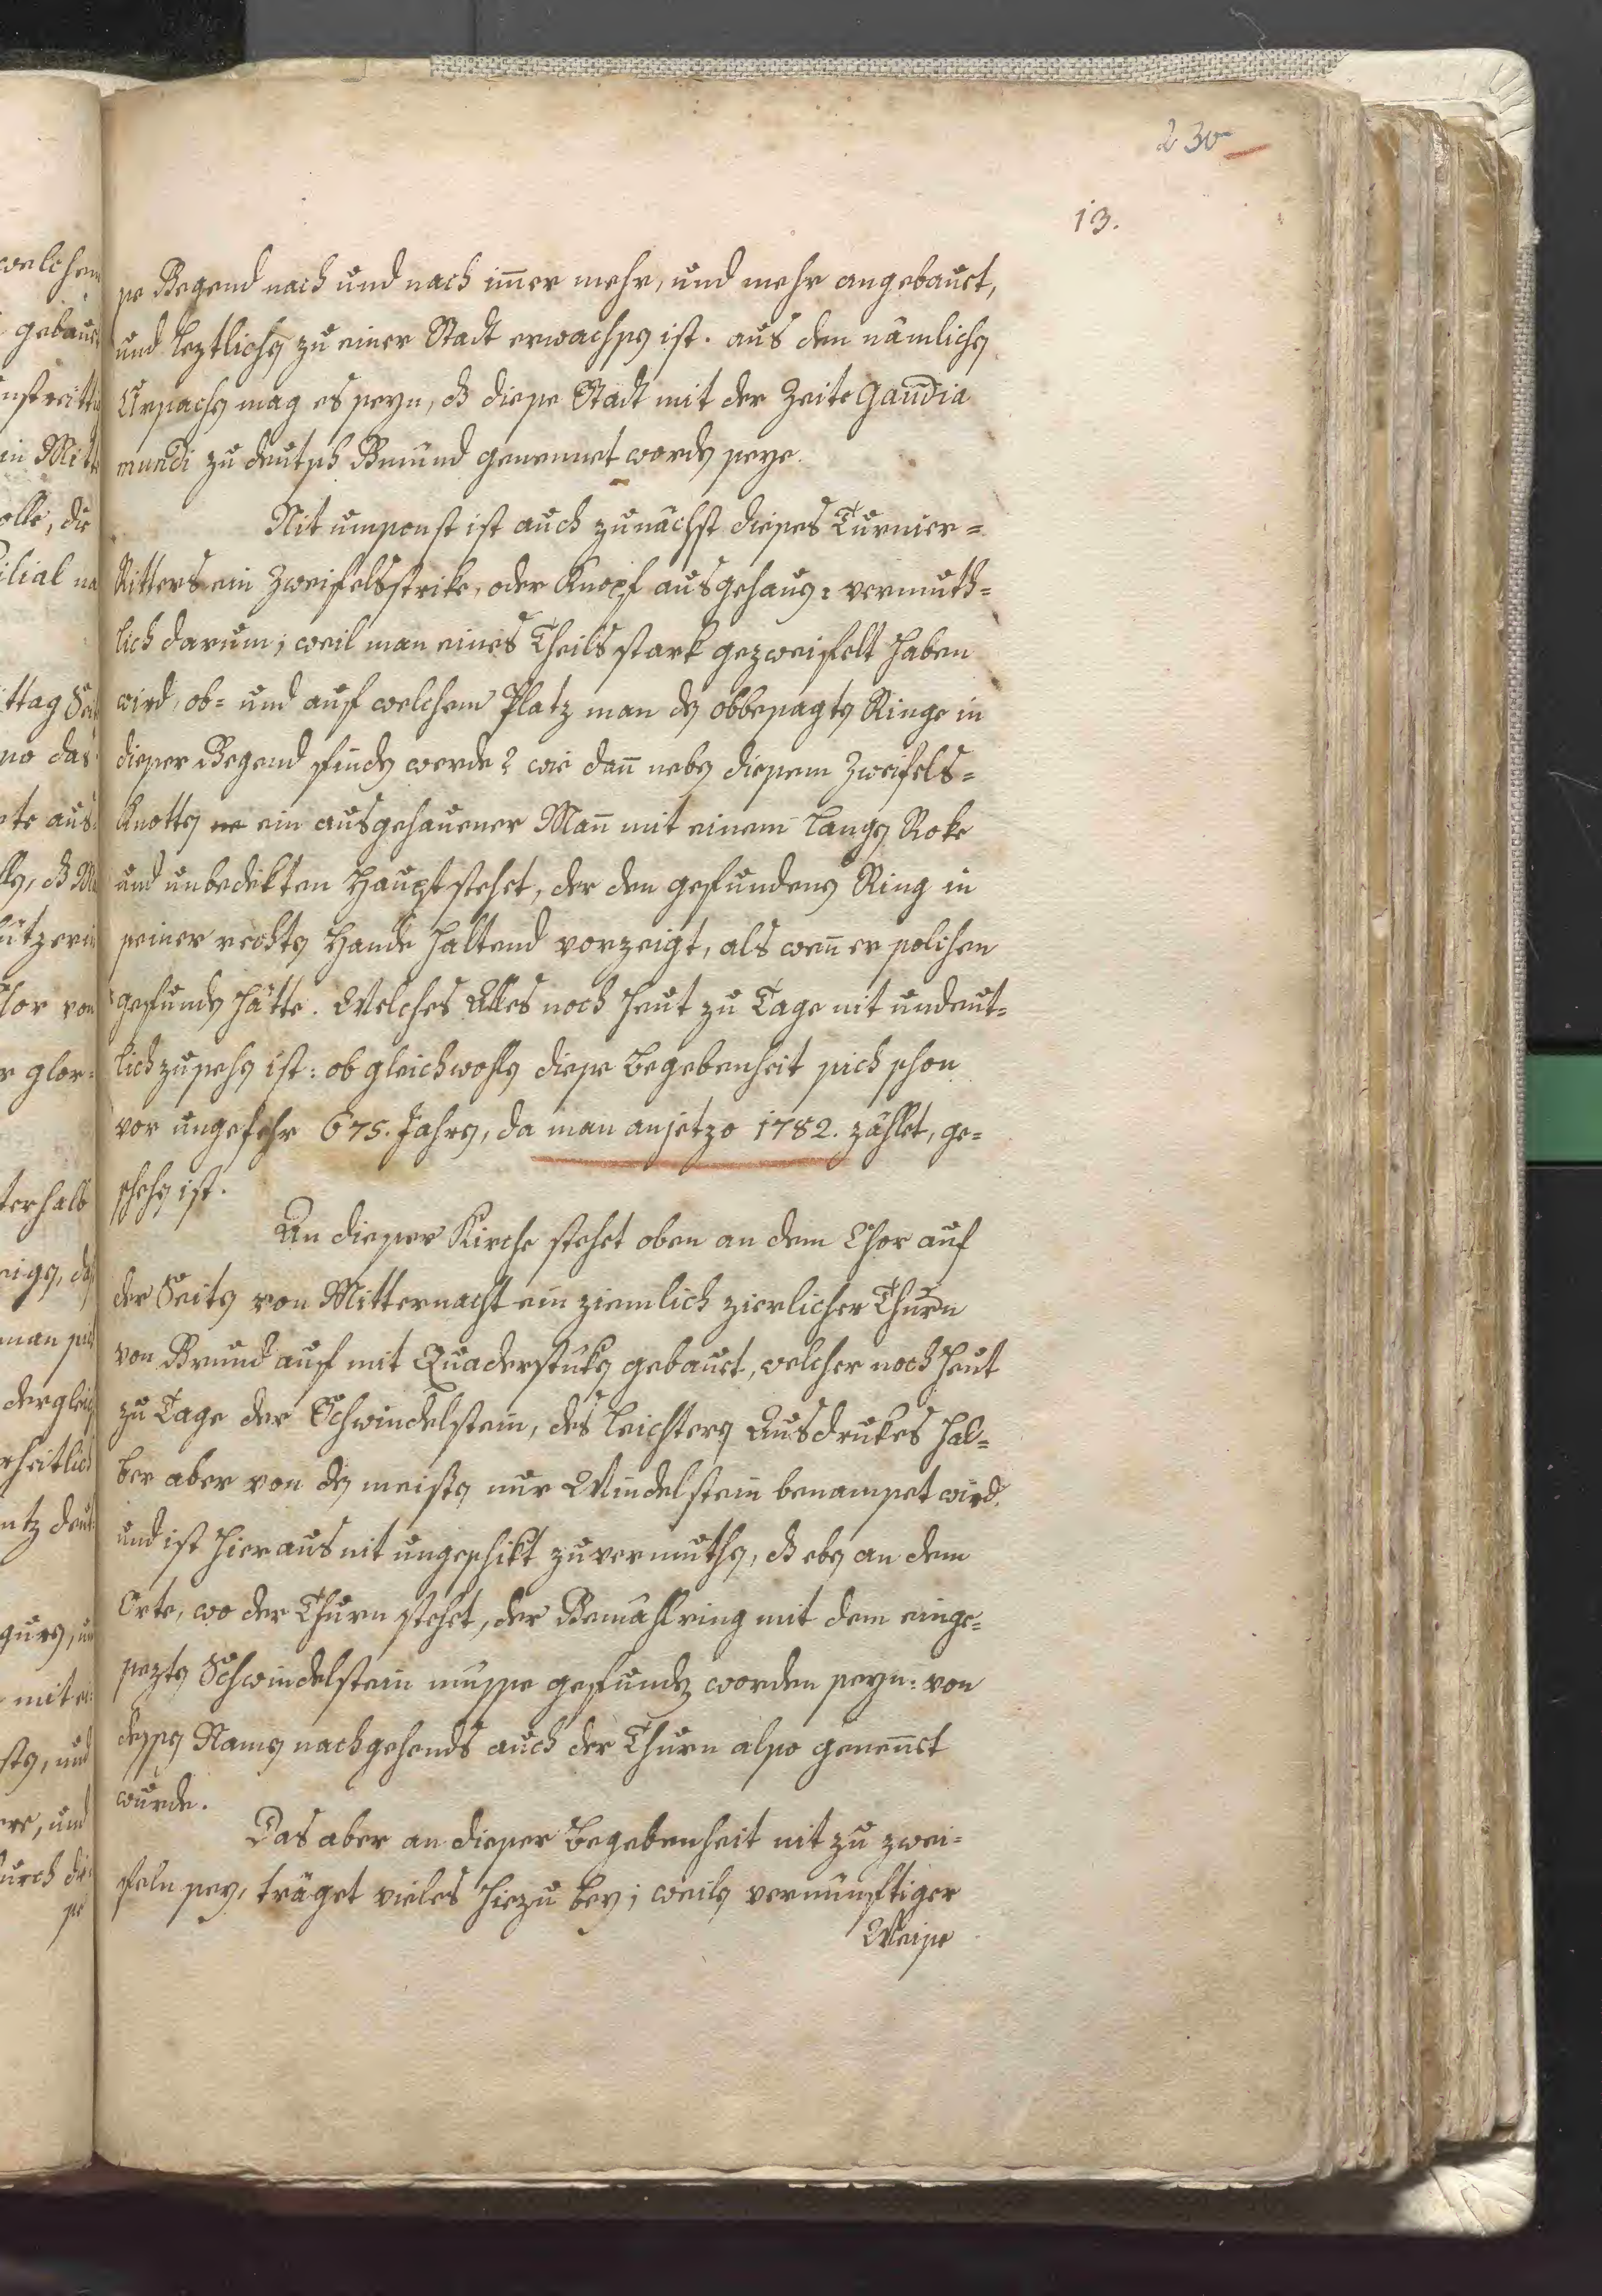 230
13.
se Gegend nach und nach im̄er mehr, und mehr angebauet,
und leztlichen zu einer Stadt erwachsen ist. aus den nämlichen
Ursachen mag es seyn, dß diese Stadt mit der Zeite Gaudia
mundi zu deutsch Gmünd genennet worden seye.
Nit umsonst ist auch zunächst dieses Turnier=
Ritters ein Zweifelsstrike, oder Knopf ausgehauen: vermuth=
lich darum; weil man eines Theils stark gezweifelt haben
wird, ob= und auf welchem Platz man den obbesagten Ringe in
dieser Gegend finden werde? wie dan̄ neben diesem Zweifels=
Knotten ein ausgehauener Man̄ mit einem langen Roke
und unbedekten Haupt stehet, der den gefundenen Ring in
seiner rechten Hande haltend vorzeigt, als wen̄ er solchen
gefunden hätte. Welches Alles noch heut zu Tage nit undeut=
lich zusehen ist: ob gleichwohlen diese Begebenheit sich schon
vor ungefehr 675. Jahren, da man anjetzo 1782. zählet, ge=
schehen ist.
An dieser Kirche stehet oben an dem Chor auf
der Seiten von Mitternacht ein ziemlich zierlicher Thurn
von Grund auf mit Quaderstuken gebauet, welcher noch heut
zu Tage der Schwindelstein, des leichteren Ausdrukes hal=
ber aber von den meisten nur Windelstein benamset wird.
und ist hieraus nit ungeschikt zuvermuthen, dß eben an dem
Orte, wo der Thurn stehet, der Gemählring mit dem einge=
sezten Schwindelstein müsse gefunden worden seyn: von
dessen Namen nachgehends auch der Thurn also genen̄et
wurde.
Das aber an dieser Begebenheit nit zu zwei=
feln sey, träget vieles hiezu bey; weilen vernünftiger
Weise